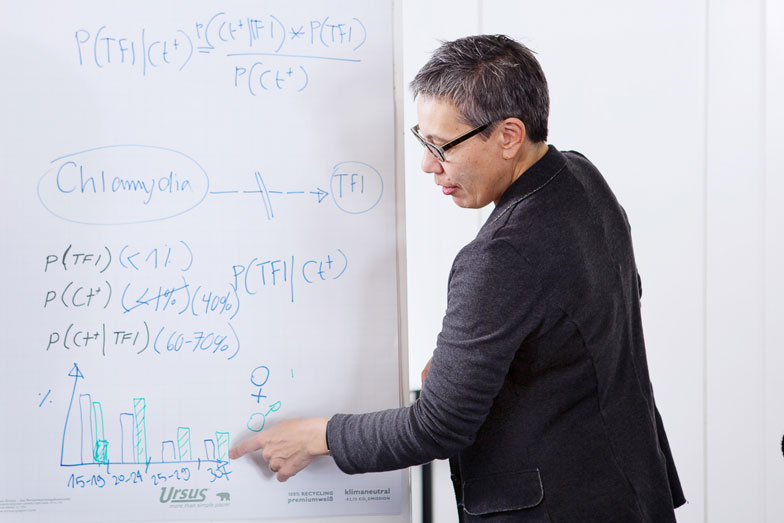 P(TFI|Ct⁺) = P(Ct⁺|TFI) * P(TFI)
P(Ct⁺)
Chlamydia
TFI
P(TFI) (<1%)
P(TFI|Ct⁺)
P(Ct⁺) (<1%) (40%)
P(Ct⁺|TFI) (60-70%)
%
♀
♂
15-19 20-24 25-29
Ursus
more than simple paper
100% RECYCLING
premiumweiß
klimaneutral